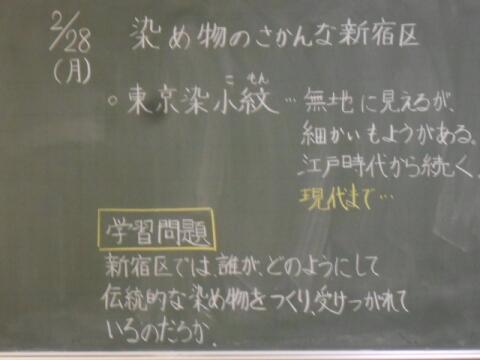 2/28
(月)
染め物のさかんな新宿区
こ もん
○東京染小紋…無地に見えるが、
細かいもようがある。
江戸時代から続く。
現代まで…
学習問題
新宿区では、誰が、どのようにして
伝統的な染め物をつくり、受けつがれて
いるのだろか。